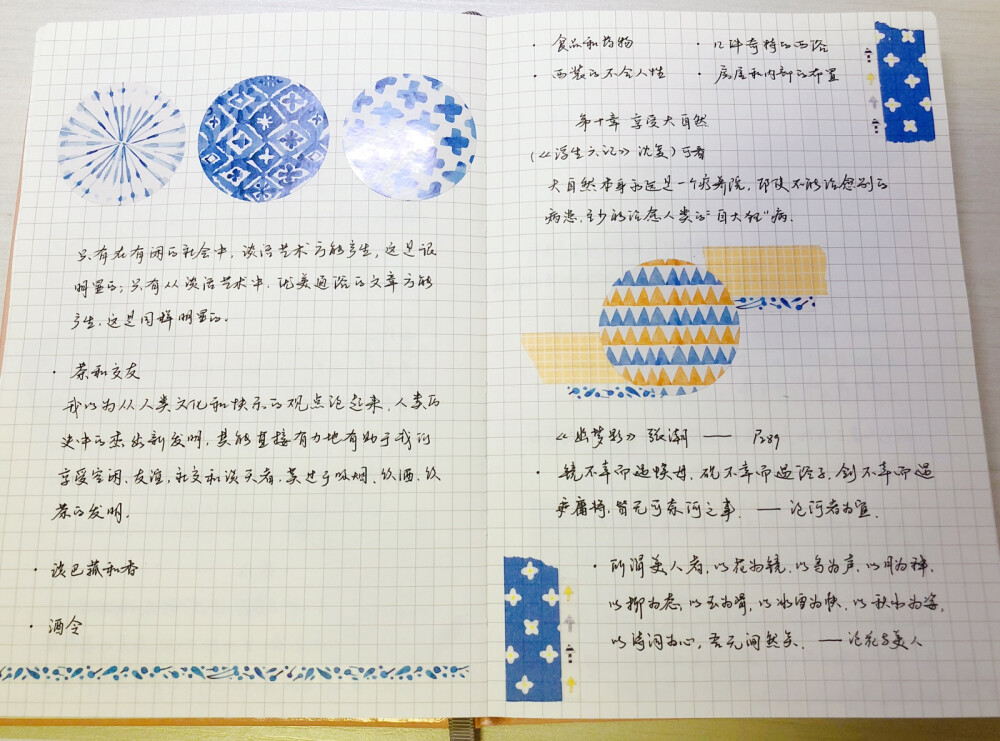 只有在有闲的社会中，谈话艺术方能产生，这是很
明显的；只有从谈话艺术中，优美通俗的文章方能
产生，这是同样明显的。
· 茶和交友
我以为从人类文化和快乐的观点论起来，人类的
史中的杰出新发明，其能直接有力地有助于我们
享受空闲、友谊、社交和谈天者，莫过于吸烟、饮酒、饮
茶的发明。
· 淡巴菰和香
· 酒令
· 食品和药物
· 几件奇特的西俗
· 西装的不合人性
· 房屋和内部的布置
第十章 享受大自然
(《浮生六记》沈复) 可看
大自然本身永远是一个疗养院，即使不能治愈别的
病患，至少能治愈人类的“自大狂”病.
《幽梦影》张潮 —— P289
· 镜不幸而遇嫫母，砚不幸而遇俗子，剑不幸而遇
庸将，皆无可奈何之事. —— 论何者为宜.
· 所谓美人者，以花为镜，以鸟为声，以月为神，
以柳为态，以玉为骨，以冰雪为肤，以秋水为姿，
以诗词为心，吾无间然矣. —— 论花与美人